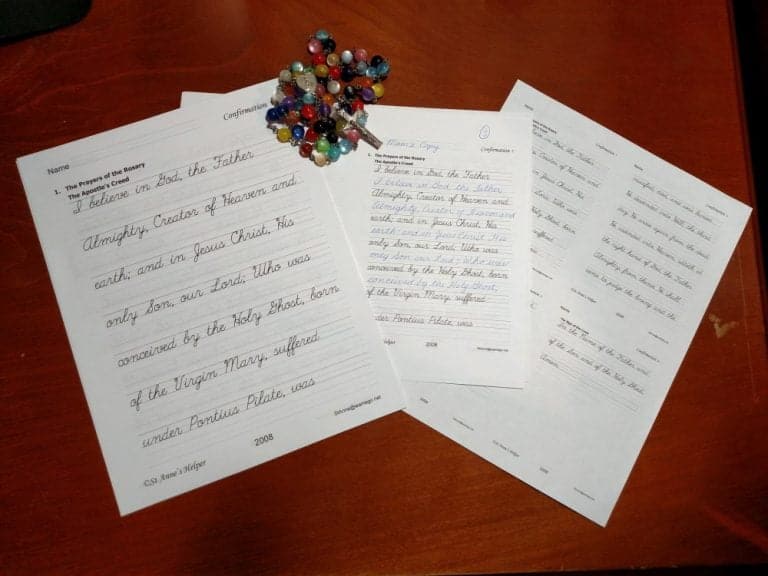 Name
Confirmation
1. The Prayers of the Rosary
The Apostle's Creed
I believe in God, the Father
Almighty, Creator of Heaven and
earth; and in Jesus Christ, His
only Son, our Lord; Who was
conceived by the Holy Ghost, born
of the Virgin Mary, suffered
under Pontius Pilate, was
©St. Anne's Helper
2008
Mom's Copy
Confirmation
1. The Prayers of the Rosary
The Apostle's Creed
I believe in God, the Father
I believe in God, the Father
Almighty, Creator of Heaven and
Almighty, Creator of Heaven and
earth; and in Jesus Christ, His
earth; and in Jesus Christ, His
only Son, our Lord; Who was
only Son our Lord; Who was
conceived by the Holy Ghost, born
conceived by the Holy Ghost,
of the Virgin Mary, suffered
under Pontius Pilate, was
Helper
2008
in God, the Father
Creator of Heaven and
in Jesus Christ, His
Lord; Who was
Holy Ghost, born
suffered
He descended into Hell; the third
day He arose again from the dead;
He ascended into Heaven, sitteth at
the right hand of God, the Father
Almighty; from thence He shall
come to judge the living and the
In the Name of the Father and
of the Son and of the Holy Ghost.
Amen.